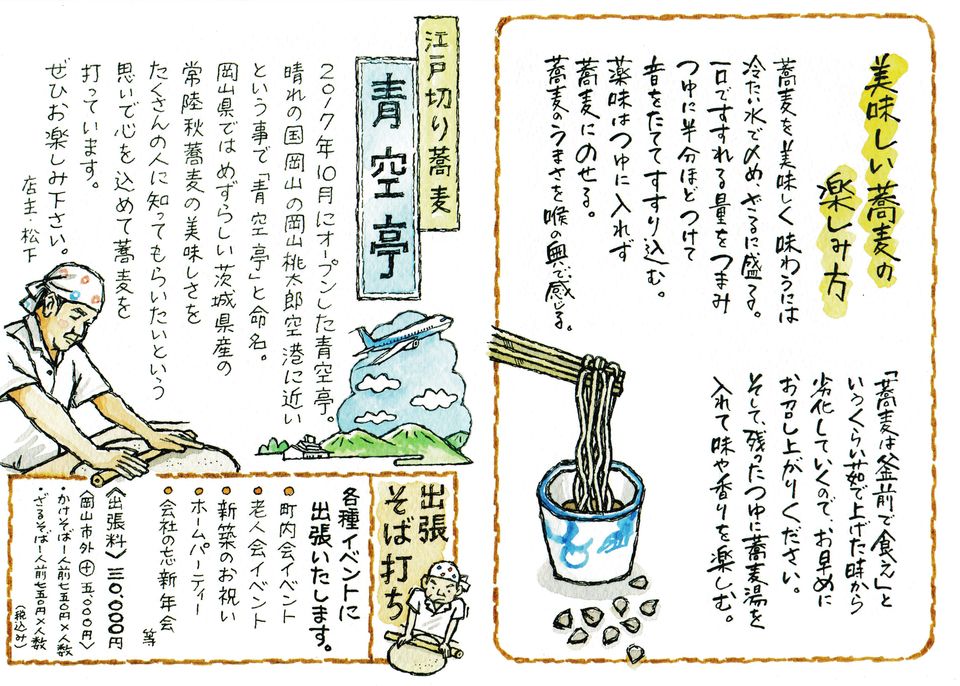 美味しい蕎麦の
楽しみ方
蕎麦を美味しく味わうには
冷たい水で〆め、ざるに盛る。
一口ですすれる量をつまみ
つゆに半分ほどつけて
音をたててすすり込む。
薬味はつゆに入れず
蕎麦にのせる。
蕎麦のうまさを喉の奥で感じる。
「蕎麦は釜前で食え」と
いうくらい茹で上げた時から
劣化していくので、お早めに
お召し上がりください。
そして、残ったつゆに蕎麦湯を
入れて味や香りを楽しむ。
江戸切り蕎麦
青空亭
2017年10月にオープンした青空亭。
晴れの国岡山の岡山桃太郎空港に近い
という事で「青空亭」と命名。
岡山県ではめずらしい茨城県産の
常陸秋蕎麦の美味しさを
たくさんの人に知ってもらいたいという
思いで心を込めて蕎麦を
打っています。
ぜひお楽しみ下さい。
店主・松下
出張
そば打ち
各種イベントに
出張いたします。
●町内会イベント
●老人会イベント
●新築のお祝い
●ホームパーティー
●会社の忘新年会
等
〈出張料〉三〇,〇〇〇円
〈岡山市外㊉五,〇〇〇円〉
・かけそば一人前七五〇円×人数
・ざるそば一人前七五〇円×人数
(税込み)